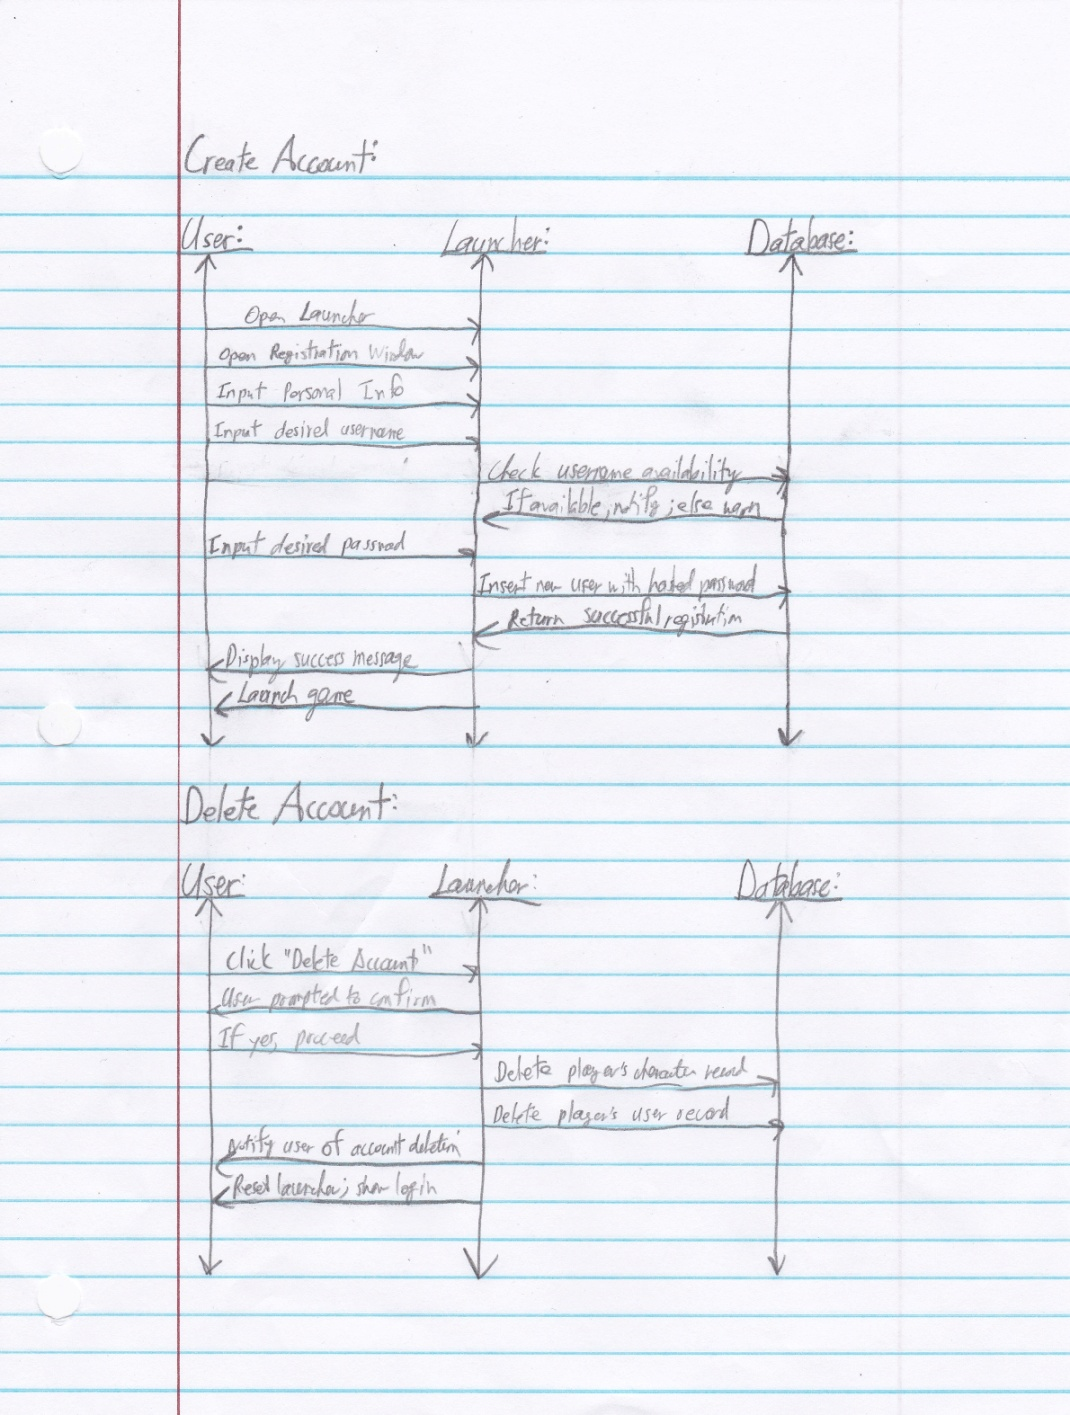 Create Account:
User: Launcher: Database:
Open Launcher
Open Registration Window
Input Personal Info
Input desired username
Check username availability
If available, notify; else warn
Input desired password
Insert new user with hashed password
Return successful registration
Display success message
Launch game
Delete Account:
User: Launcher: Database:
Click "Delete Account"
User prompted to confirm
If yes, proceed
Delete player's character record
Delete player's user record
Notify user of account deletion
Reset launcher; show login